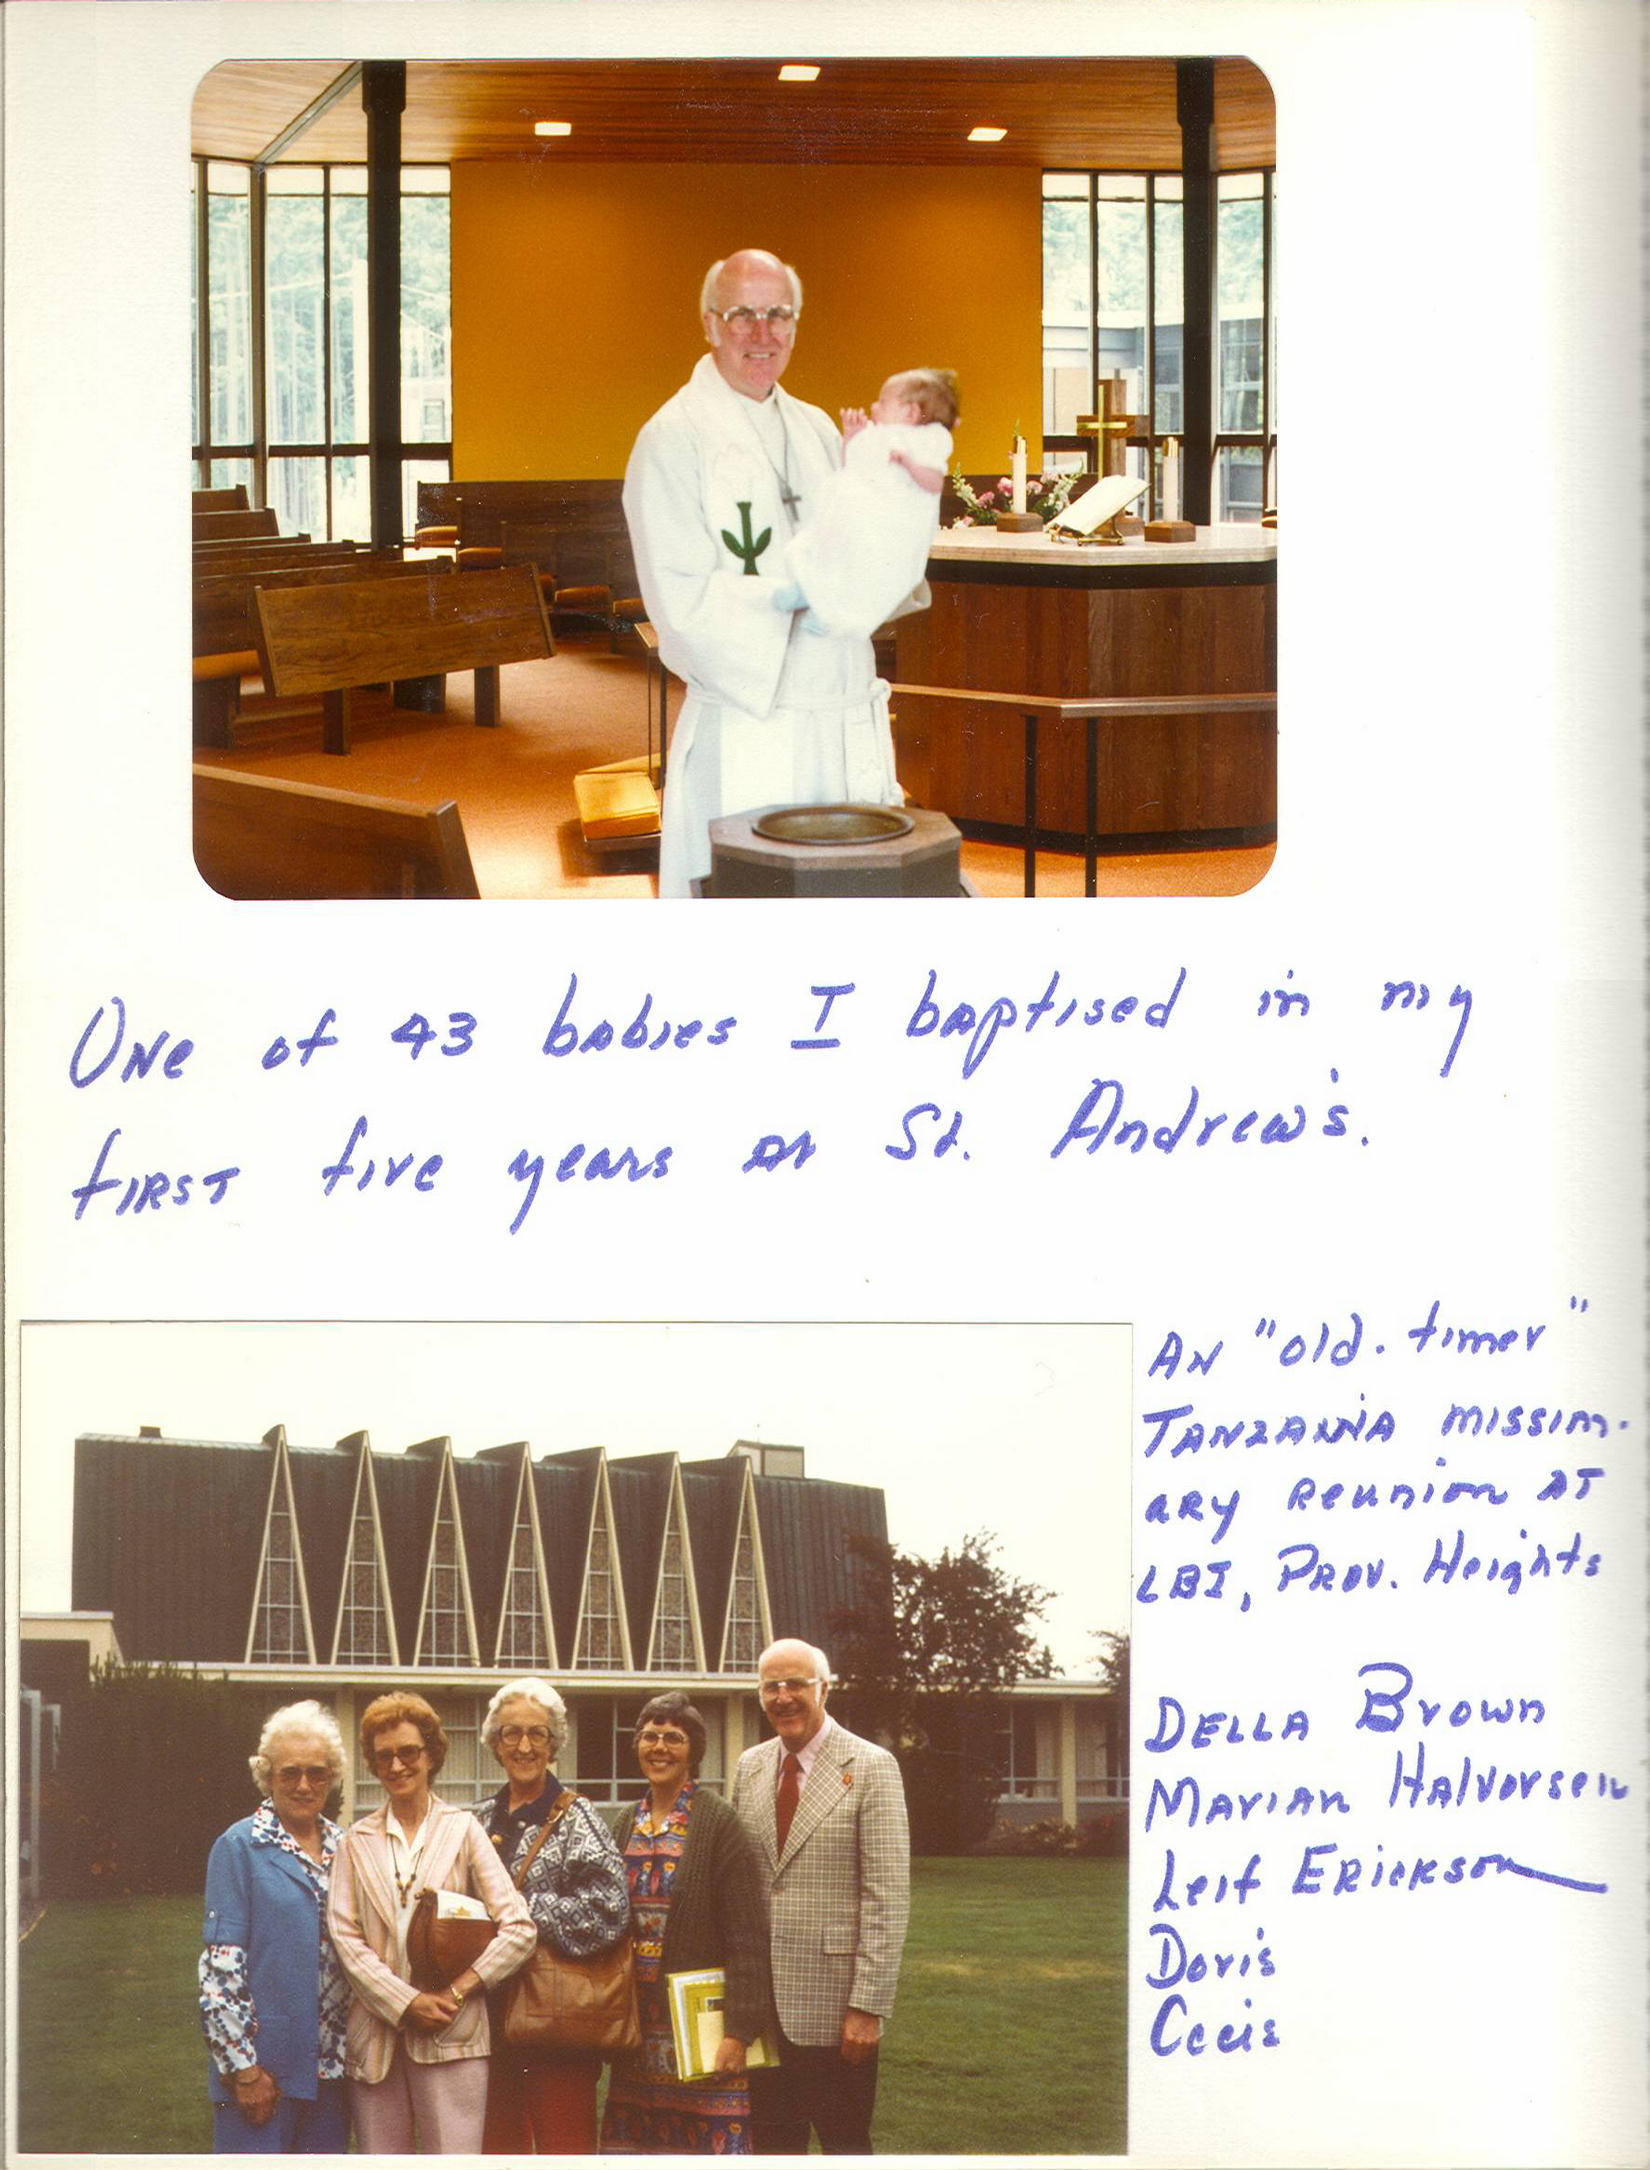 One of 43 babies I baptised in my
first five years at St. Andrew's.
An "old-timer"
Tanzania mission-
ary reunion at
LBI, Prov. Heights
Della Brown
Marian Halvorsen
Leif Erickson
Doris